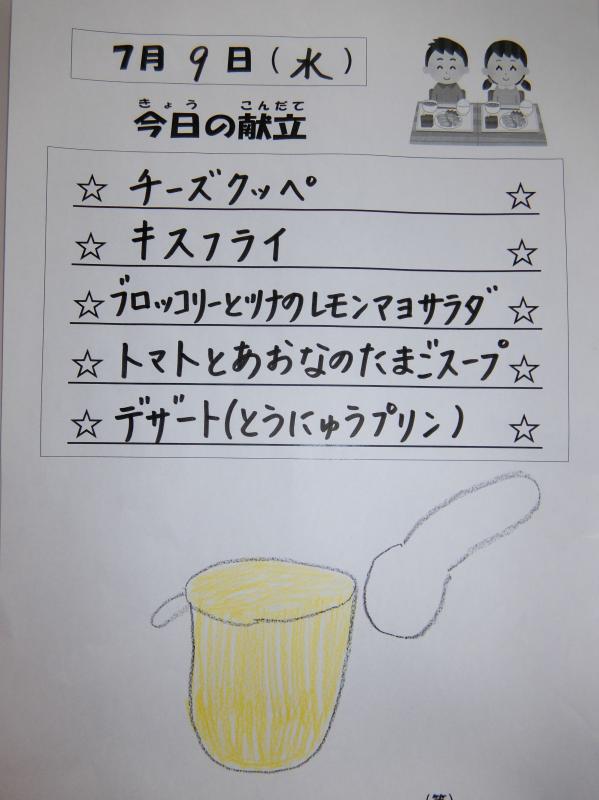 7月9日(水)
きょう こんだて
今日の献立
☆ チーズクッペ ☆
☆ キスフライ ☆
☆ ブロッコリーとツナのレモンマヨサラダ ☆
☆ トマトとあおなのたまごスープ ☆
☆ デザート(とうにゅうプリン) ☆